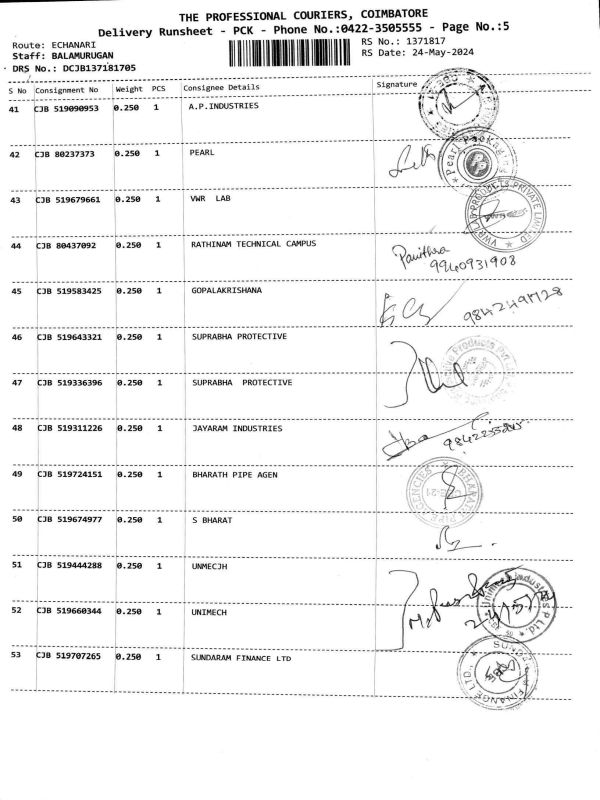 THE PROFESSIONAL COURIERS, COIMBATORE
Delivery Runsheet - PCK - Phone No.:0422-3505555 - Page No.:5
Route: ECHANARI RS No.: 1371817
Staff: BALAMURUGAN RS Date: 24-May-2024
DRS No.: DCJB137181705
S No Consignment No Weight PCS Consignee Details Signature
41 CJB 519090953 0.250 1 A.P.INDUSTRIES
42 CJB 80237373 0.250 1 PEARL
Pearl Packaging
43 CJB 519679661 0.250 1 VWR LAB
VWR LAB PRODUCTS PRIVATE LIMITED
44 CJB 80437092 0.250 1 RATHINAM TECHNICAL CAMPUS
Pavithra
9940931908
45 CJB 519583425 0.250 1 GOPALAKRISHANA
46 CJB 519643321 0.250 1 SUPRABHA PROTECTIVE
Products Pvt
47 CJB 519336396 0.250 1 SUPRABHA PROTECTIVE
48 CJB 519311226 0.250 1 JAYARAM INDUSTRIES
49 CJB 519724151 0.250 1 BHARATH PIPE AGEN
BHARATH PIPE AGENCIES
CBE-21
50 CJB 519674977 0.250 1 S BHARAT
51 CJB 519444288 0.250 1 UNMECJH
52 CJB 519660344 0.250 1 UNIMECH
Unimech Industries P Ltd.
53 CJB 519707265 0.250 1 SUNDARAM FINANCE LTD
SUNDARAM FINANCE LTD.,